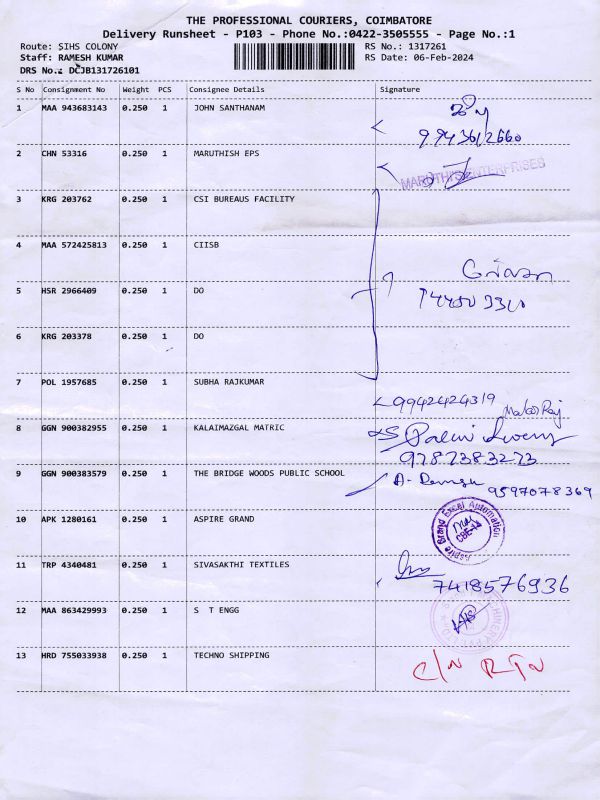 THE PROFESSIONAL COURIERS, COIMBATORE
Delivery Runsheet - P103 - Phone No.:0422-3505555 - Page No.:1
Route: SIHS COLONY
RS No.: 1317261
Staff: RAMESH KUMAR
RS Date: 06-Feb-2024
DRS No.: DCJB131726101
S No Consignment No Weight PCS Consignee Details Signature
1 MAA 943683143 0.250 1 JOHN SANTHANAM
2 CHN 53316 0.250 1 MARUTHISH EPS MARUTHISH ENTERPRISES
3 KRG 203762 0.250 1 CSI BUREAUS FACILITY
4 MAA 572425813 0.250 1 CIISB
5 HSR 2966409 0.250 1 DO
6 KRG 203378 0.250 1 DO
7 POL 1957685 0.250 1 SUBHA RAJKUMAR 9942424319
8 GGN 900382955 0.250 1 KALAIMAZGAL MATRIC
9787383273
9 GGN 900383579 0.250 1 THE BRIDGE WOODS PUBLIC SCHOOL 9597078369
10 APK 1280161 0.250 1 ASPIRE GRAND Aspire Grand Excel Automation CBE-14
11 TRP 4340481 0.250 1 SIVASAKTHI TEXTILES 7418576936
12 MAA 863429993 0.250 1 S T ENGG
13 HRD 755033938 0.250 1 TECHNO SHIPPING C/N RTN